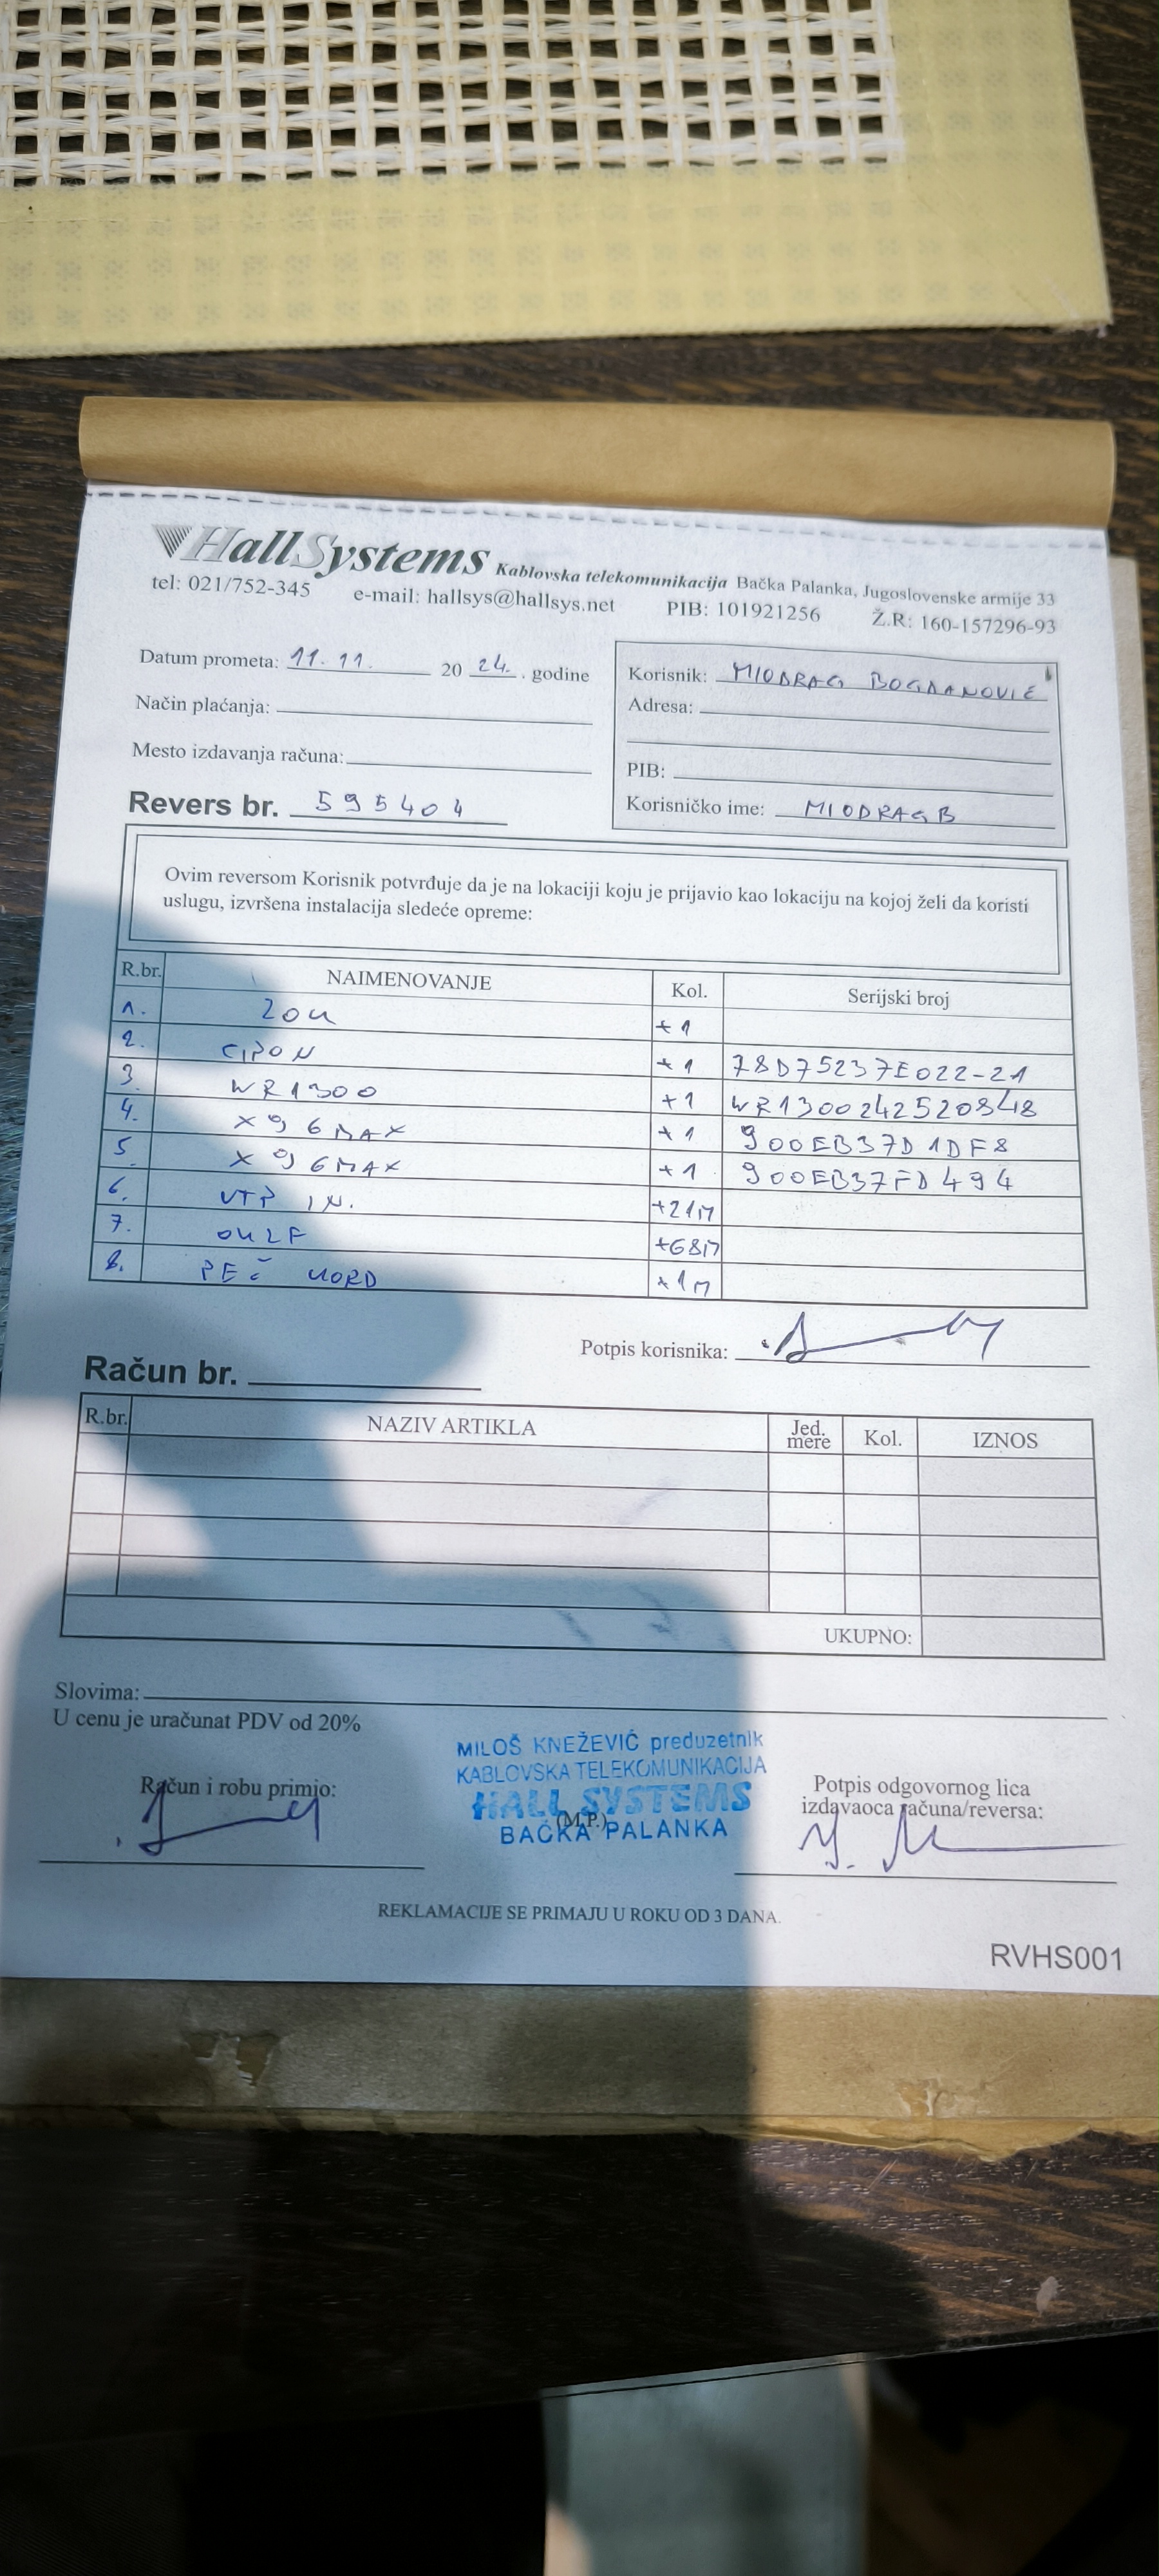 HallSystems Kablovska telekomunikacija Bačka Palanka, Jugoslovenske armije 33
tel: 021/752-345 e-mail: hallsys@hallsys.net PIB: 101921256 Ž.R: 160-157296-93
Datum prometa: 11.11. 20 24. godine
Način plaćanja:
Mesto izdavanja računa:
Revers br. 595404
Korisnik: MIODRAG BOGDANOVIĆ
Adresa:
PIB:
Korisničko ime: MIODRAGB
Ovim reversom Korisnik potvrđuje da je na lokaciji koju je prijavio kao lokaciju na kojoj želi da koristi
uslugu, izvršena instalacija sledeće opreme:
R.br. NAIMENOVANJE Kol. Serijski broj
1. +1
2. +1 78D75237E022-21
3. WR1300 +1 WR1300242520848
4. X96MAX +1 900EB37D1DF8
5. X96MAX +1 900EB37FD494
6. UTP IN. +21M
7. +68M
8. +1M
Potpis korisnika:
Račun br.
R.br. NAZIV ARTIKLA Jed. mere Kol. IZNOS
UKUPNO:
Slovima:
U cenu je uračunat PDV od 20%
Račun i robu primio:
MILOŠ KNEŽEVIĆ preduzetnik
KABLOVSKA TELEKOMUNIKACIJA
HALL SYSTEMS
(M.P.)
BAČKA PALANKA
Potpis odgovornog lica
izdavaoca računa/reversa:
REKLAMACIJE SE PRIMAJU U ROKU OD 3 DANA.
RVHS001